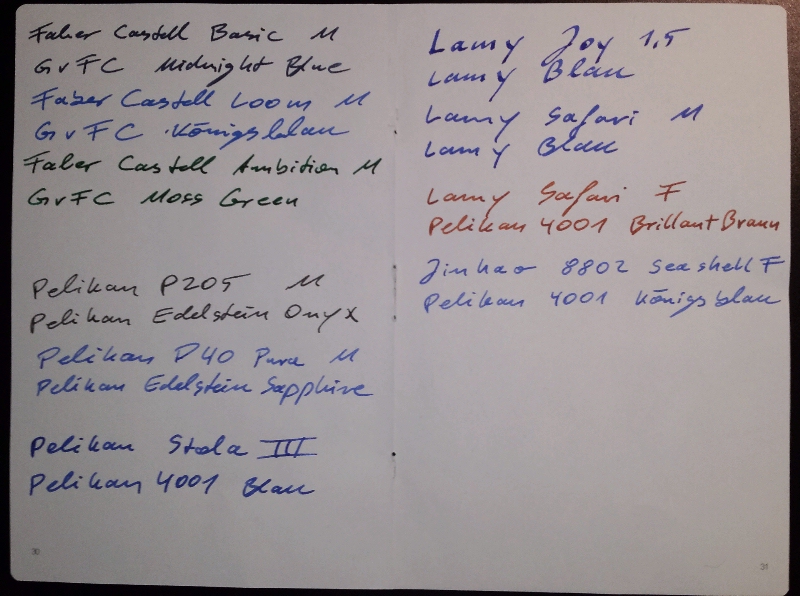 Faber Castell Basic M
GvFC Midnight Blue
Faber Castell Loom M
GvFC Königsblau
Faber Castell Ambition M
GvFC Moss Green
Pelikan P205 M
Pelikan Edelstein Onyx
Pelikan P40 Pura M
Pelikan Edelstein Sapphire
Pelikan Stola III
Pelikan 4001 Blau
30
Lamy Joy 1,5
Lamy Blau
Lamy Safari M
Lamy Blau
Lamy Safari F
Pelikan 4001 Brillant Braun
Jinhao 8802 Seashell F
Pelikan 4001 Königsblau
31